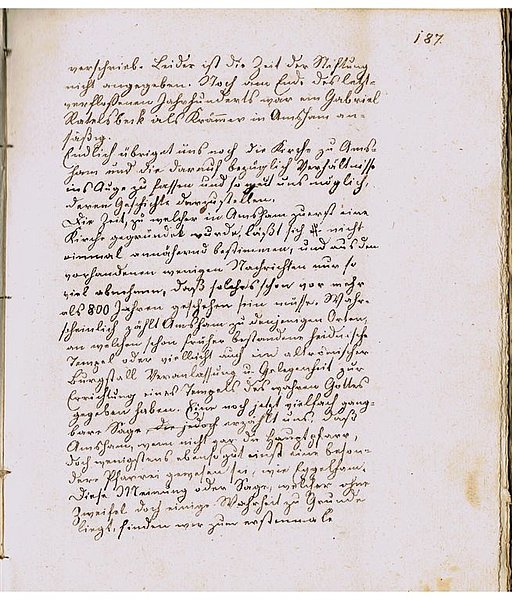 187.
verschrieb. Leider ist die Zeit der Stiftung
nicht angegeben. Noch am Ende des letzt-
verflossenen Jahrhunderts war ein Gabriel
Ratelsbeck als Krämmer in Amsham an-
säßig.
Endlich übriget uns noch die Kirche zu Ams-
ham und die darauf bezüglich Verhältnisse
ins Auge zu fassen und so gut uns möglich,
deren Geschichte darzustellen.
Die Zeit, zu welcher in Amsham zuerst eine
Kirche gegründet wurde, läßt sich nicht
einmal annährend bestimmen, und aus den
vorhandenen wenigen Nachrichten nur so
viel abnehmen, daß solches schon vor mehr
als 800 Jahren geschehen sein müsse. Wahr-
scheinlich zählt Amsham zu denjenigen Orten,
an welchen schon früher bestandene heidnische
Tempel oder vielleicht auch ein altrömischer
Burgstall Veranlassung u. Gelegenheit zur
Errichtung eines Tempels des wahren Gottes
gegeben haben. Eine noch jetzt vielfach gang-
bare Sage die jedoch erzählt uns, daß
Amsham, wenn nicht gar die Hauptpfarr,
doch wenigstens ebenso gut einst eine beson-
dere Pfarrei gewesen sei, wie Egglham.
Diese Meinung oder Sage, welcher ohne
Zweifel doch einige Wahrheit zu Grunde
liegt, finden wir zum erstenmale